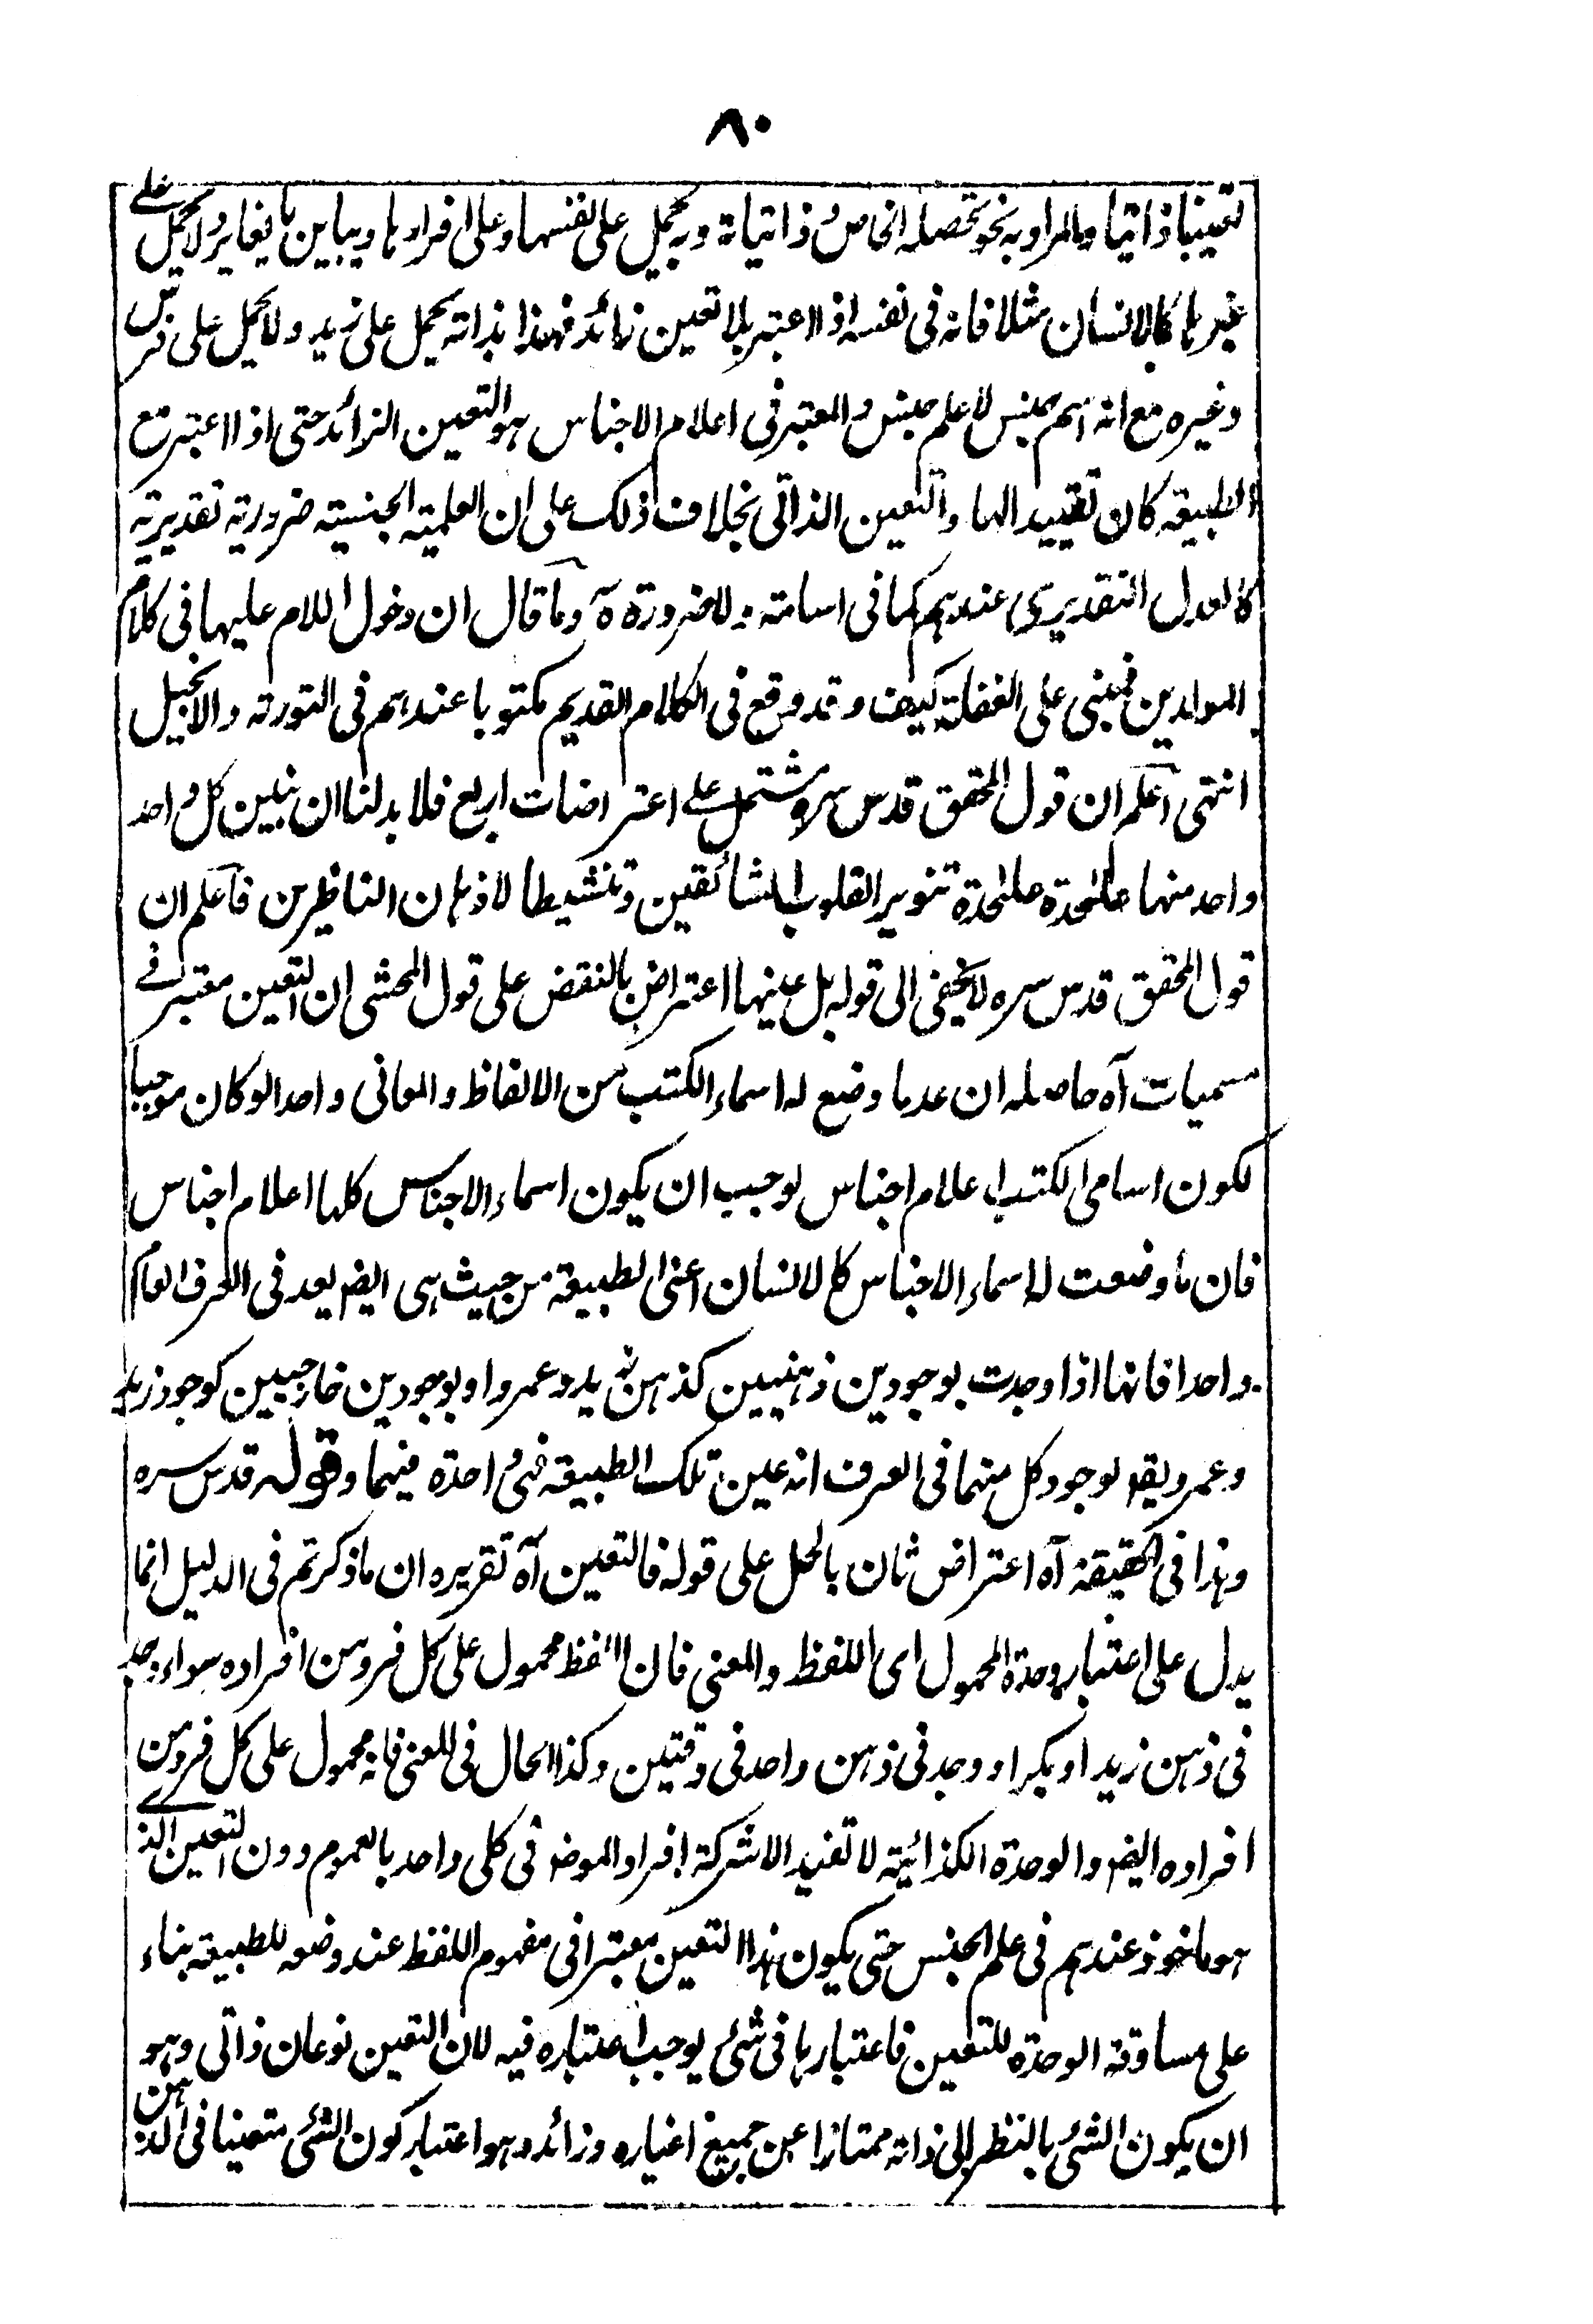 ٨٠
تعينا ذاتيا والمراد به نحو تحصله الخاص ذاتياته وبه يحمل على نفسها وعلى افرادها ويباين ما يغايره لا يحمل على
غيرها كالانسان مثلا فانه فى نفسه اذا اعتبر بلا تعين زائد فهذا بذاته يحمل على زيد ولا يحمل على فرس
وغيره مع انه اسم جنس لا علم جنس والمعتبر فى اعلام الاجناس هو التعين الزائد حتى اذا اعتبر مع
الطبيعة كان تقييدا لها والتعين الذاتى بخلاف ذلك على ان العلمية الجنسية ضرورية تقديرية
كالعدل التقديرى عندهم كما فى اسامة ولا ضرورة ه آ وما قال ان دخول اللام عليها فى كلام
المولدين فمبنى على الغفلة كيف وقد وقع فى الكلام القديم مكتوبا عندهم فى التورىة والانجيل
انتهى اعلم ان قول المحقق قدس سره مشتمل على اعتراضات اربع فلا بد لنا ان نبين كل واحد
واحد منها علىحدة علىحدة تنويرا لقلوب الشائقين وتنشيطا لاذهان الناظرين فاعلم ان
قول المحقق قدس سره لا يخفى الى قوله بل عينها اعتراض بالنقض على قول المحشى ان التعين معتبر فى
مسميات آه حاصله ان عد ما وضع له اسماء الكتب من الالفاظ والمعانى واحدا لو كان موجبا
لكون اسامى الكتب اعلام اجناس لوجب ان يكون اسماء الاجناس كلها اعلام اجناس
فان ما وضعت له اسماء الاجناس كالانسان اعنى الطبيعة من حيث هى ايضا يعد فى العرف العام
واحدا فانها اذا وجدت بوجودين ذهنيين كذهن زيد وعمرو او بوجودين خارجيين كوجود زيد
وعمرو يقو لوجود كل منهما فى العرف انه عين تلك الطبيعة فهى واحدة فيهما وقوله قدس سره
وهذا فى الحقيقة آه اعتراض ثان بالحل على قوله فالتعين آه تقريره ان ما ذكرتم فى الدليل انما
يدل على اعتبار وحدة المحمول اى اللفظ والمعنى فان اللفظ محمول على كل فرد من افراده سواء وجد
فى ذهن زيد او بكر او وجد فى ذهن واحد فى وقتين وكذا الحال فى المعنى فانه محمول على كل فرد من
افراده ايضا والوحدة الكذائية لا تفيد الا شركة افراد الموضو فى كلى واحد بالعموم دون التعين الذى
هو ماخوذ عندهم فى علم الجنس حتى يكون هذا التعين معتبرا فى مفهوم اللفظ عند وضعه للطبيعة بناء
على مساوقة الوحدة للتعين فاعتبارها فى شئ يوجب اعتباره فيه لان التعين نوعان ذاتى وهو
ان يكون الشئ بالنظر الى ذاته ممتازا عن جميع اغياره وزائد وهو اعتبار كون الشئ متعينا فى الذهن